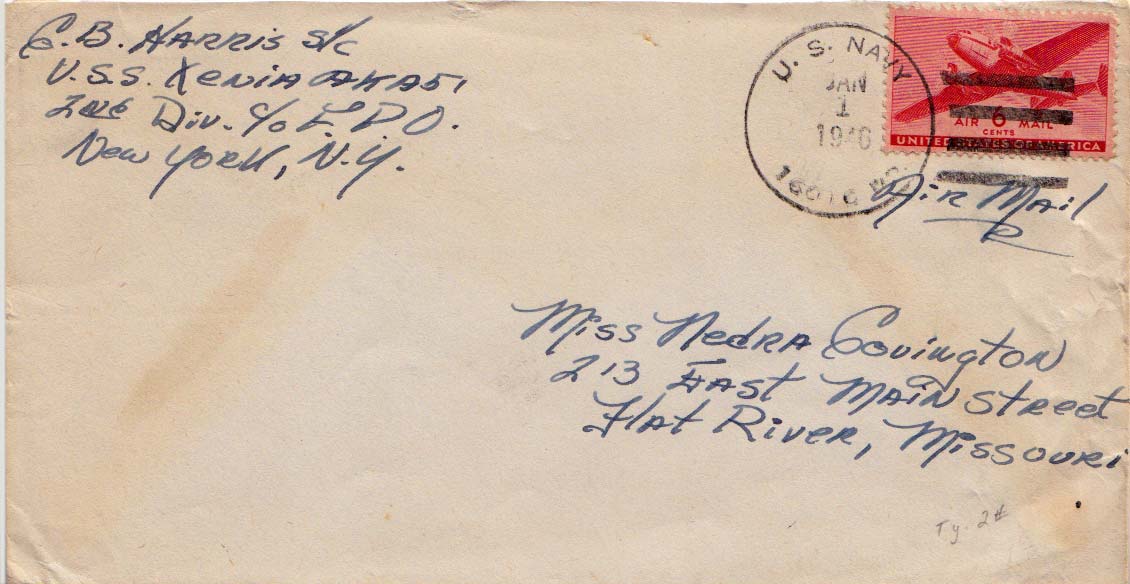 C. B. HARRIS S/C
U.S.S. XENIA AKA 51
2nd Div. c/o F P O.
New York, N.Y.
U. S. NAVY
JAN
1
1946
AIR 6 MAIL
CENTS
UNITED STATES OF AMERICA
AiR MAil
Miss Nedra Covington
213 East Main Street
Flat River, Missouri